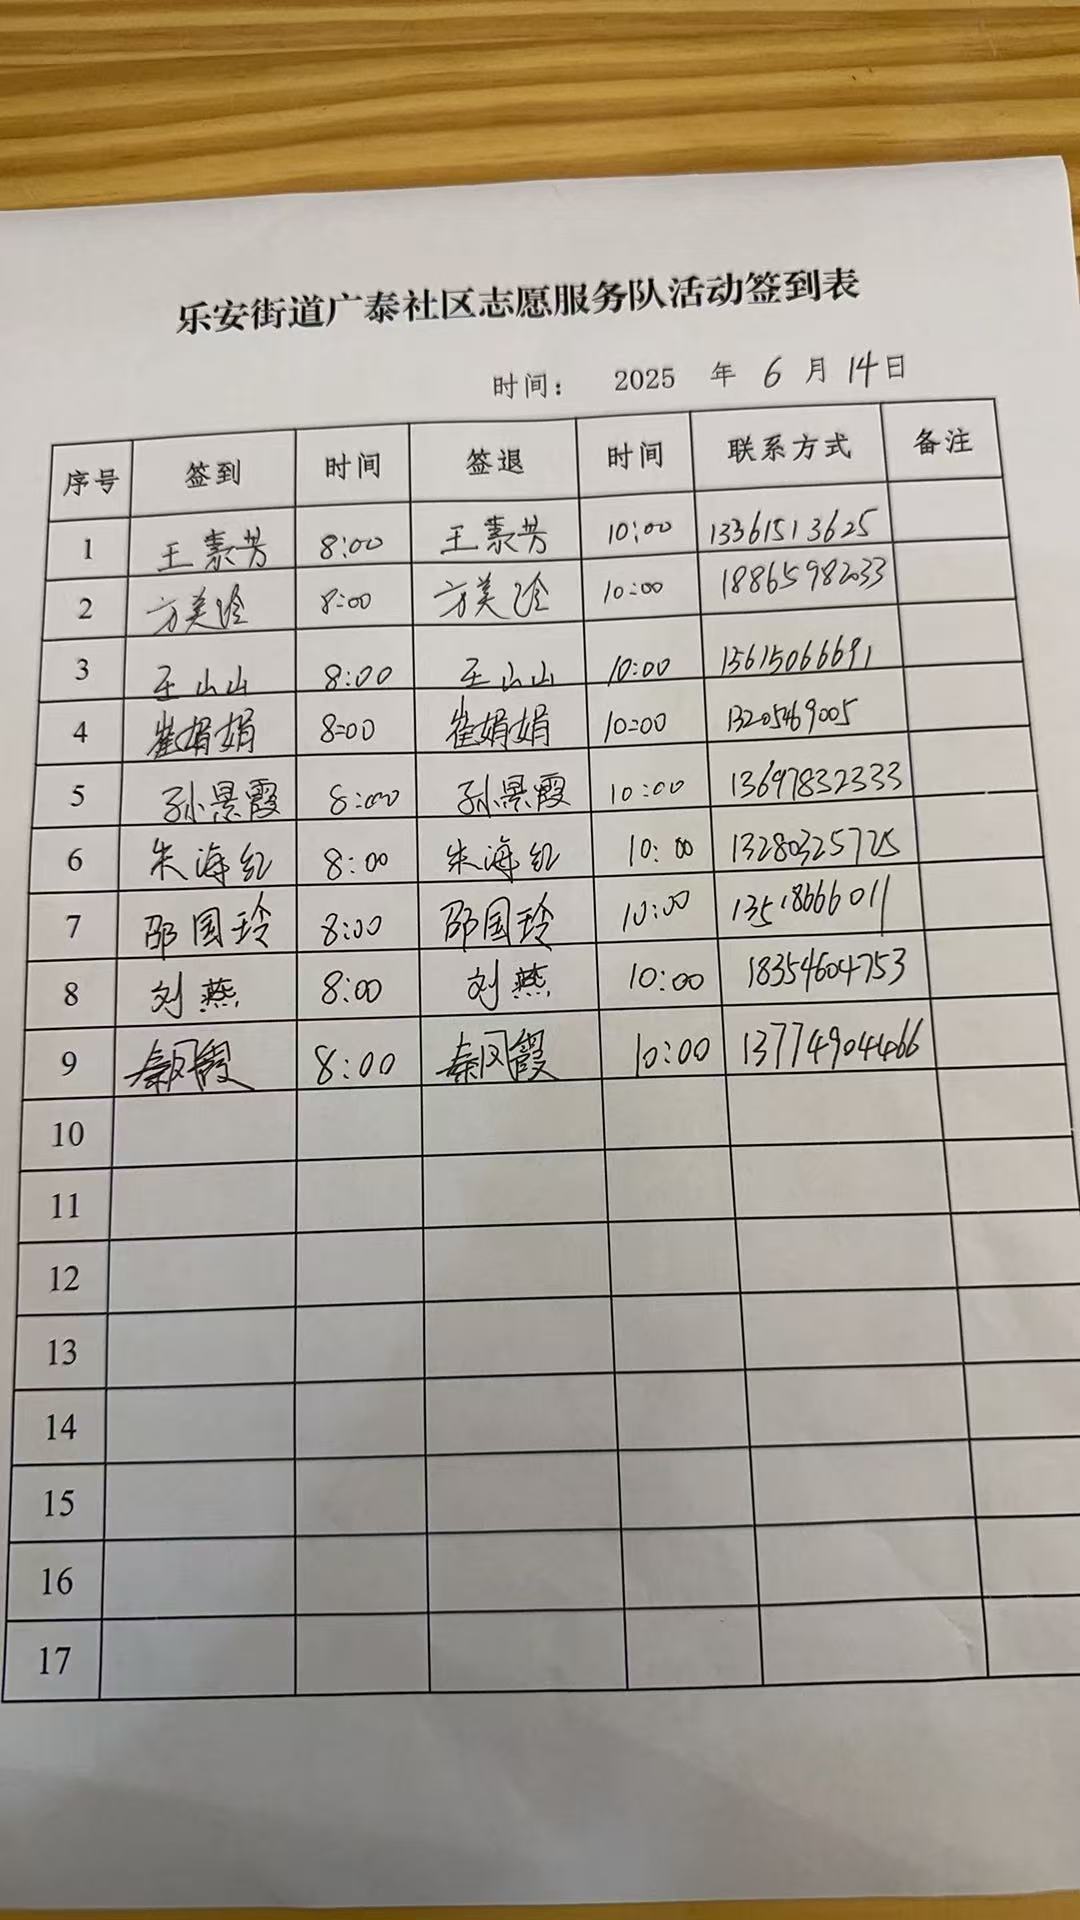 乐安街道广泰社区志愿服务队活动签到表
时间： 2025 年 6 月 14日
序号 签到 时间 签退 时间 联系方式 备注
1 王素芳 8:00 王素芳 10:00 13361513625
2 方美玲 8:00 方美玲 10:00 18865982033
3 王山山 8:00 王山山 10:00 15615066691
4 崔娟娟 8:00 崔娟娟 10:00 13205469005
5 孙景霞 8:00 孙景霞 10:00 13697832333
6 朱海红 8:00 朱海红 10:00 13280325725
7 邵国玲 8:00 邵国玲 10:00
8 刘燕 8:00 刘燕 10:00 18354604753
9 秦凤霞 8:00 秦凤霞 10:00
10
11
12
13
14
15
16
17